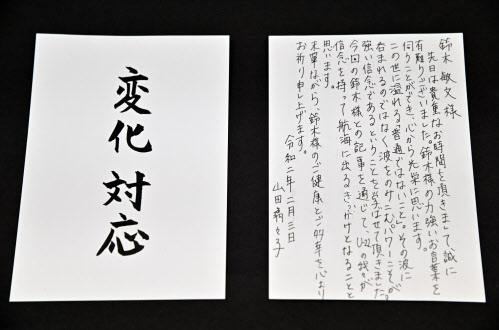 変化対応
鈴木敏文様
先日は貴重なお時間を頂きまして、誠に
有難うございました。鈴木様の力強いお言葉を
伺うことができ、心から光栄に思います。
この世に溢れる「普通ではないこと」。その波に
呑まれるのではなく波をのみこむパワーこそが
強い信念であるということを学ばせて頂きました。
今回の鈴木様との記事を通じて、U29の我々が
信念を持って航海に出るきっかけとなることと
思います。
末筆ながら、鈴木様のご健康とご多幸を心より
お祈り申し上げます。
令和二年二月三日
山田